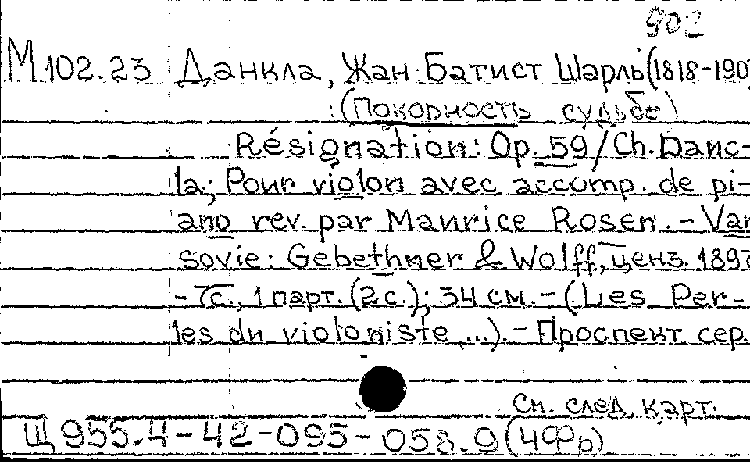 902
М 102.23 Данкла, Жан Батист Шарль (1818-190
(Покорность судьбе)
Résignation: Op. 59 / Ch. Danc-
la; Pour violon avec accomp. de pi-
ano rev. par Maurice Rosen. - Var
sovie: Gebethner & Wolff, ценз. 1897
- 7с., 1 парт. (2с.); 34 см. - (Les Per-
les du violoniste ...). - Проспект сер.
См. след. карт.
Щ 955.4-42-095-058.9 (4Фр)